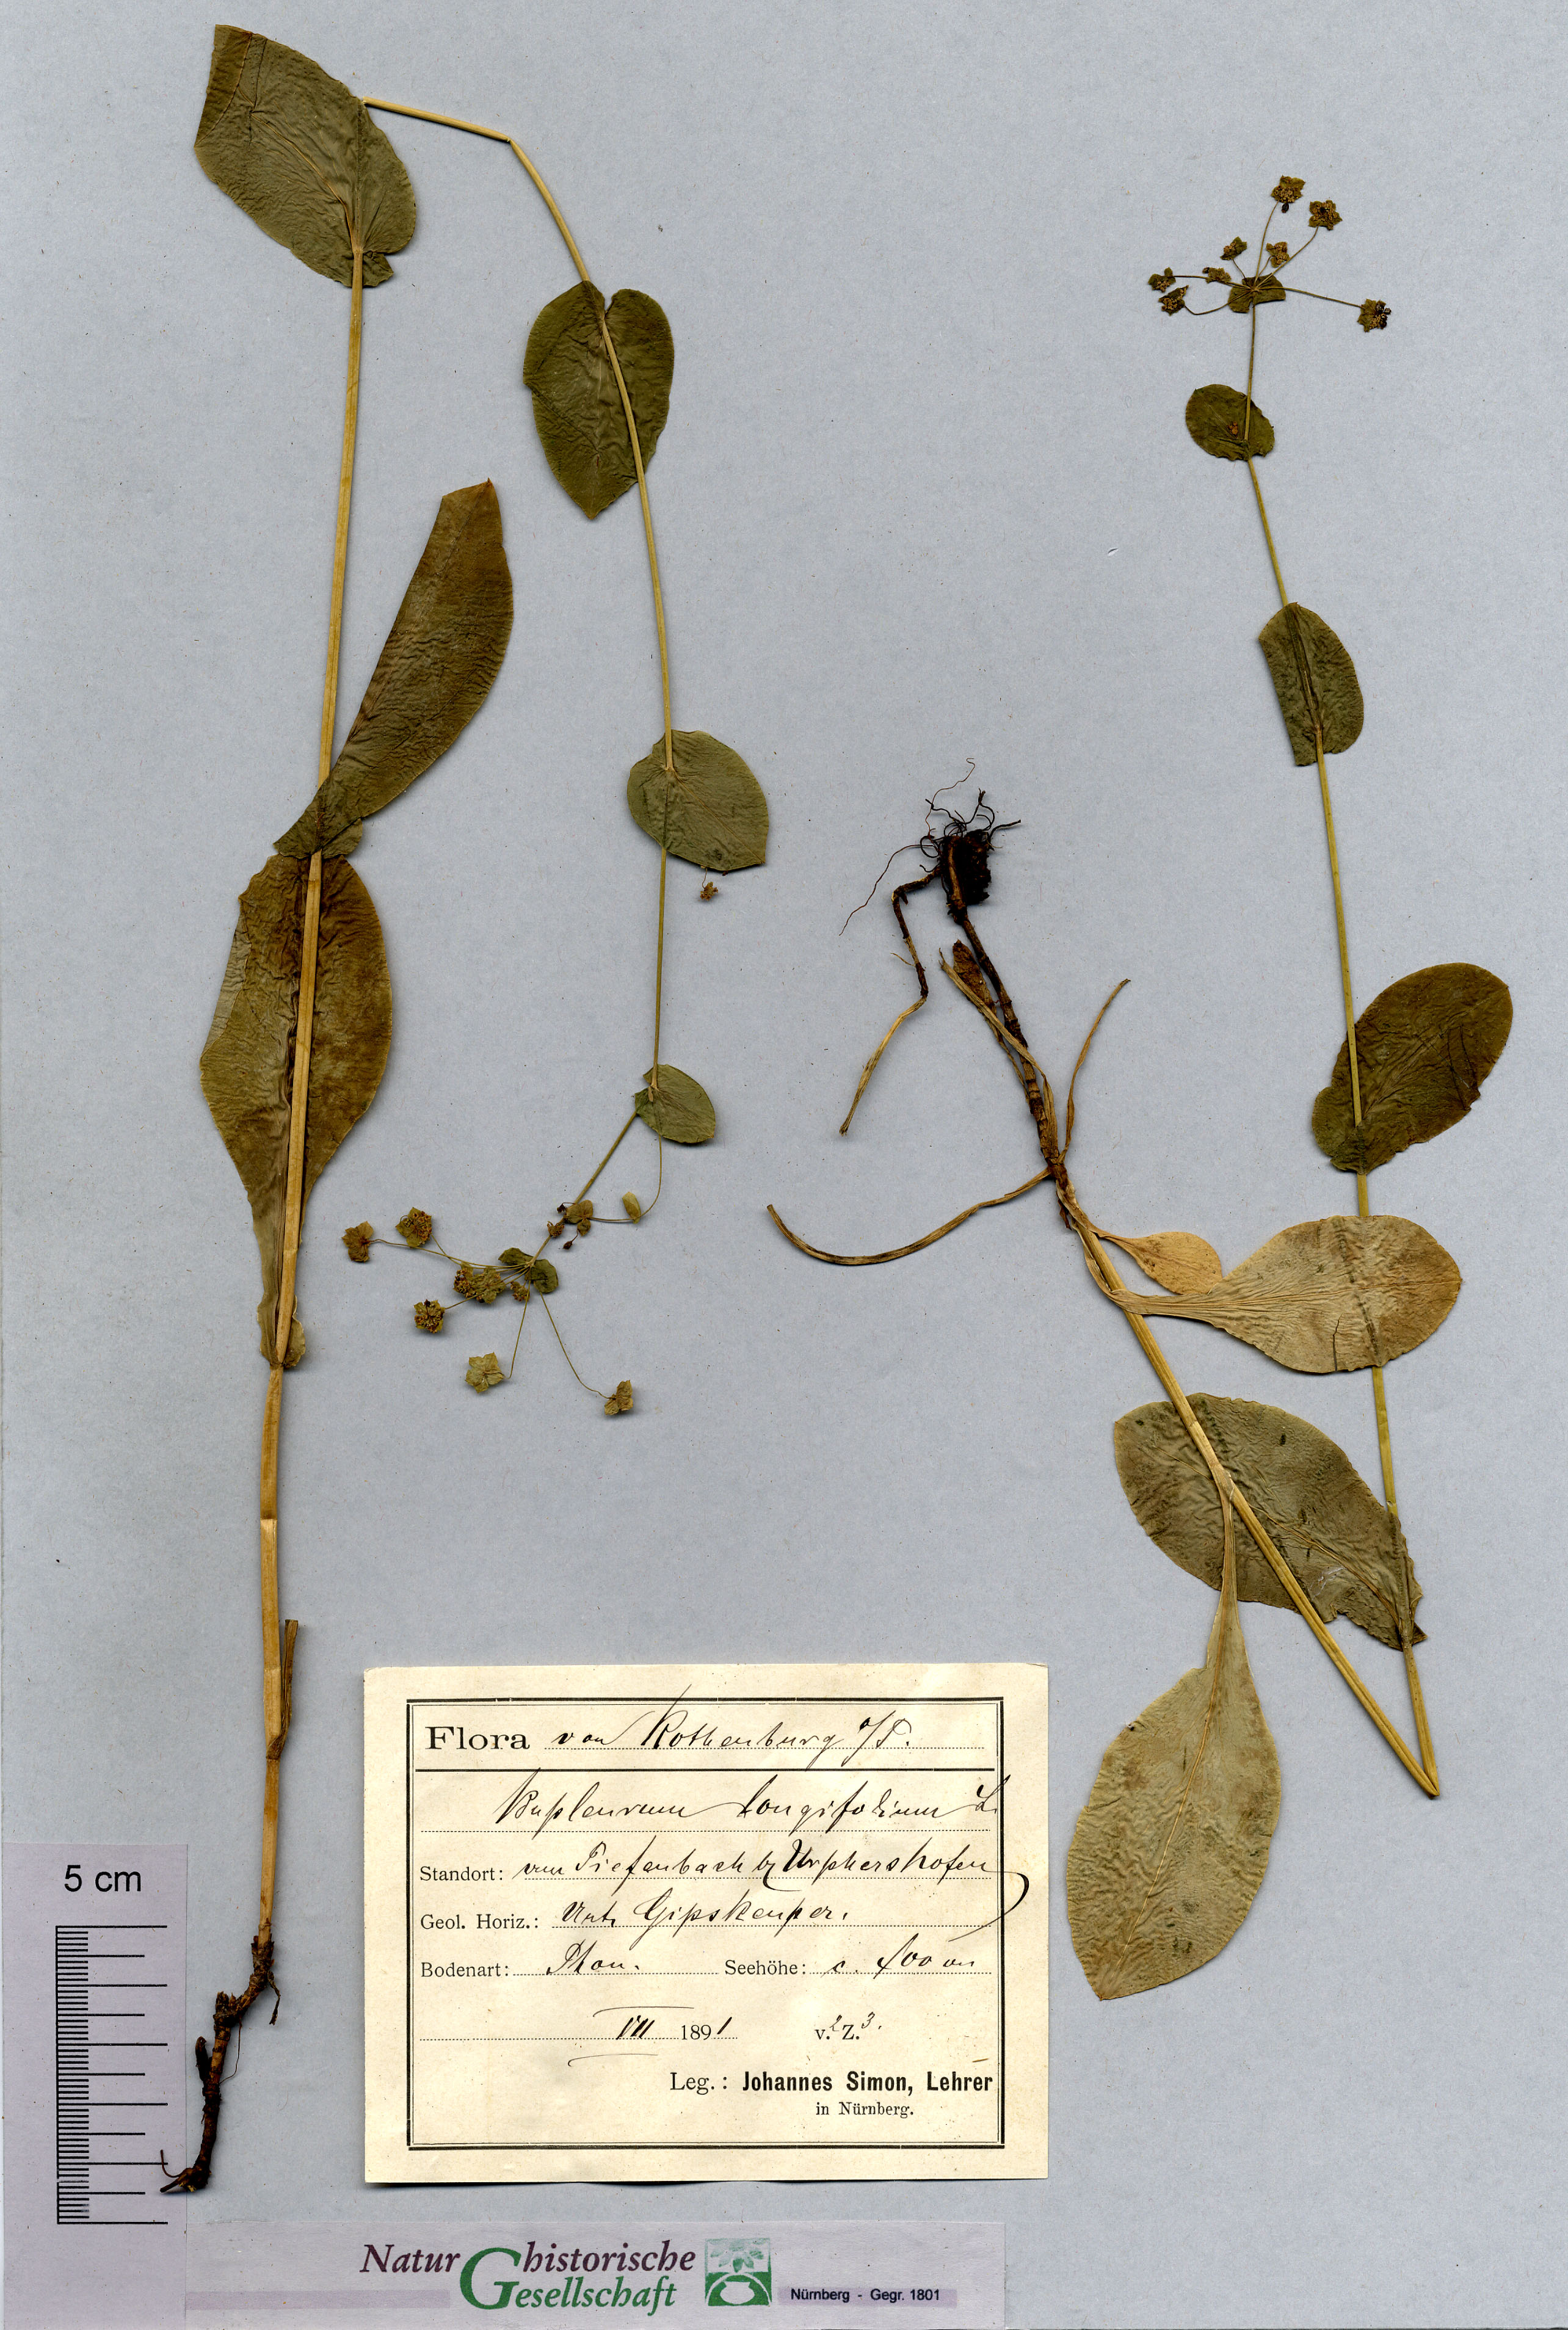 Flora von Rothenburg o/T.
Bupleurum longifolium L.
Standort: vom Tiefenbach b/ Urphershofen
Geol. Horiz.: Unt. Gipskeuper.
Bodenart: Thon. Seehöhe: c. 400 m
VII 1891 v.2 Z.3.
Leg.: Johannes Simon, Lehrer
in Nürnberg.
5 cm
Naturhistorische
Gesellschaft
Nürnberg - Gegr. 1801